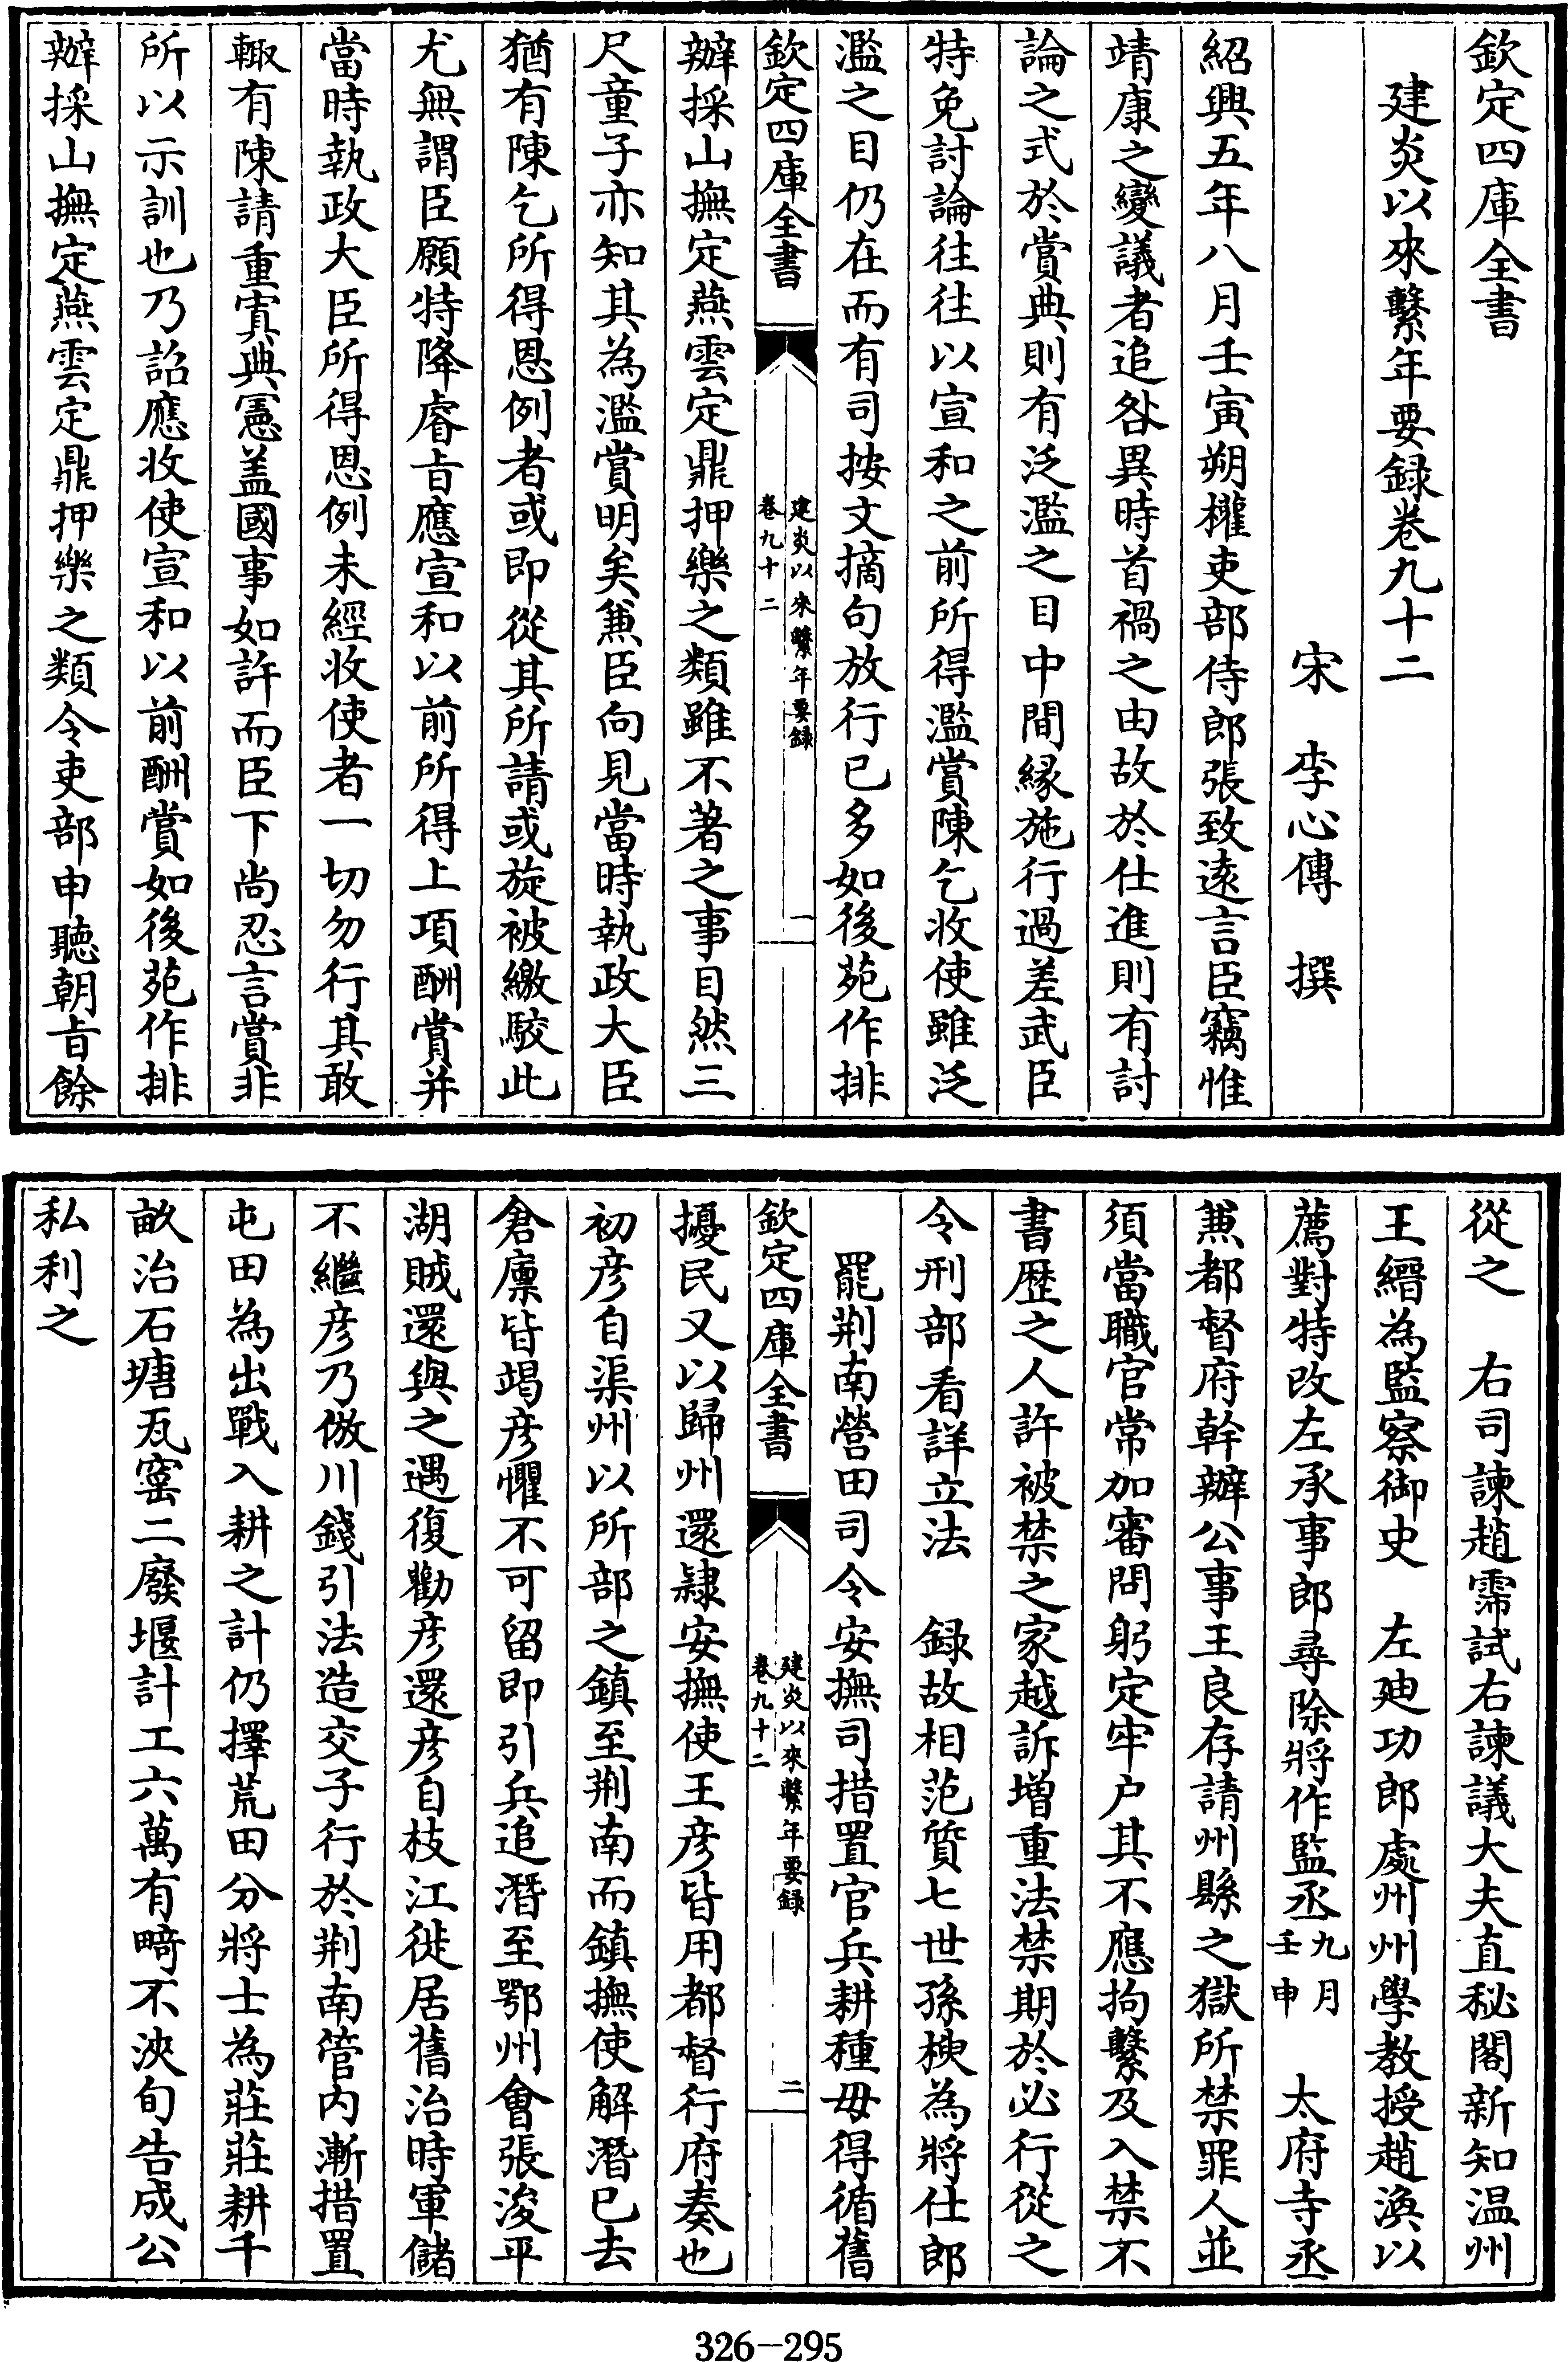 欽定四庫全書
建炎以來繫年要録卷九十二
宋　李心傳　撰
紹興五年八月壬寅朔權吏部侍郎張致遠言臣竊惟
靖康之變議者追咎異時首禍之由故於仕進則有討
論之式於賞典則有泛濫之目中間縁施行過差武臣
特免討論往往以宣和之前所得濫賞陳乞收使雖泛
濫之目仍在而有司按文摘句放行已多如後苑作排
欽定四庫全書
建炎以來繫年要録
卷九十二
一
辦採山撫定燕雲定鼎押樂之類雖不著之事目然三
尺童子亦知其為濫賞明矣兼臣向見當時執政大臣
猶有陳乞所得恩例者或即從其所請或旋被繳駮此
尤無謂臣願特降睿旨應宣和以前所得上項酬賞并
當時執政大臣所得恩例未經收使者一切勿行其敢
輙有陳請重寘典憲盖國事如許而臣下尚忍言賞非
所以示訓也乃詔應收使宣和以前酬賞如後苑作排
辦採山撫定燕雲定鼎押樂之類令吏部申聽朝旨餘
從之　右司諫趙霈試右諫議大夫直秘閣新知温州
王縉為監察御史　左廸功郎處州州學教授趙渙以
薦對特改左承事郎尋除將作監丞九月壬申　太府寺丞
兼都督府幹辦公事王良存請州縣之獄所禁罪人並
須當職官常加審問躬定牢户其不應拘繫及入禁不
書歴之人許被禁之家越訴増重法禁期於必行從之
令刑部看詳立法　録故相范質七世孫㭿為將仕郎
罷荆南營田司令安撫司措置官兵耕種毋得循舊
欽定四庫全書
建炎以來繫年要録
卷九十二
二
擾民又以歸州還隷安撫使王彦皆用都督行府奏也
初彦自渠州以所部之鎮至荆南而鎮撫使解潛已去
倉廪皆竭彦懼不可留即引兵追潛至鄂州會張浚平
湖賊還與之遇復勸彦還彦自枝江徙居舊治時軍儲
不繼彦乃倣川錢引法造交子行於荆南管内漸措置
屯田為出戰入耕之計仍擇荒田分將士為莊莊耕千
畝治石塘瓦窰二廢堰計工六萬有畸不浹旬告成公
私利之
326-295